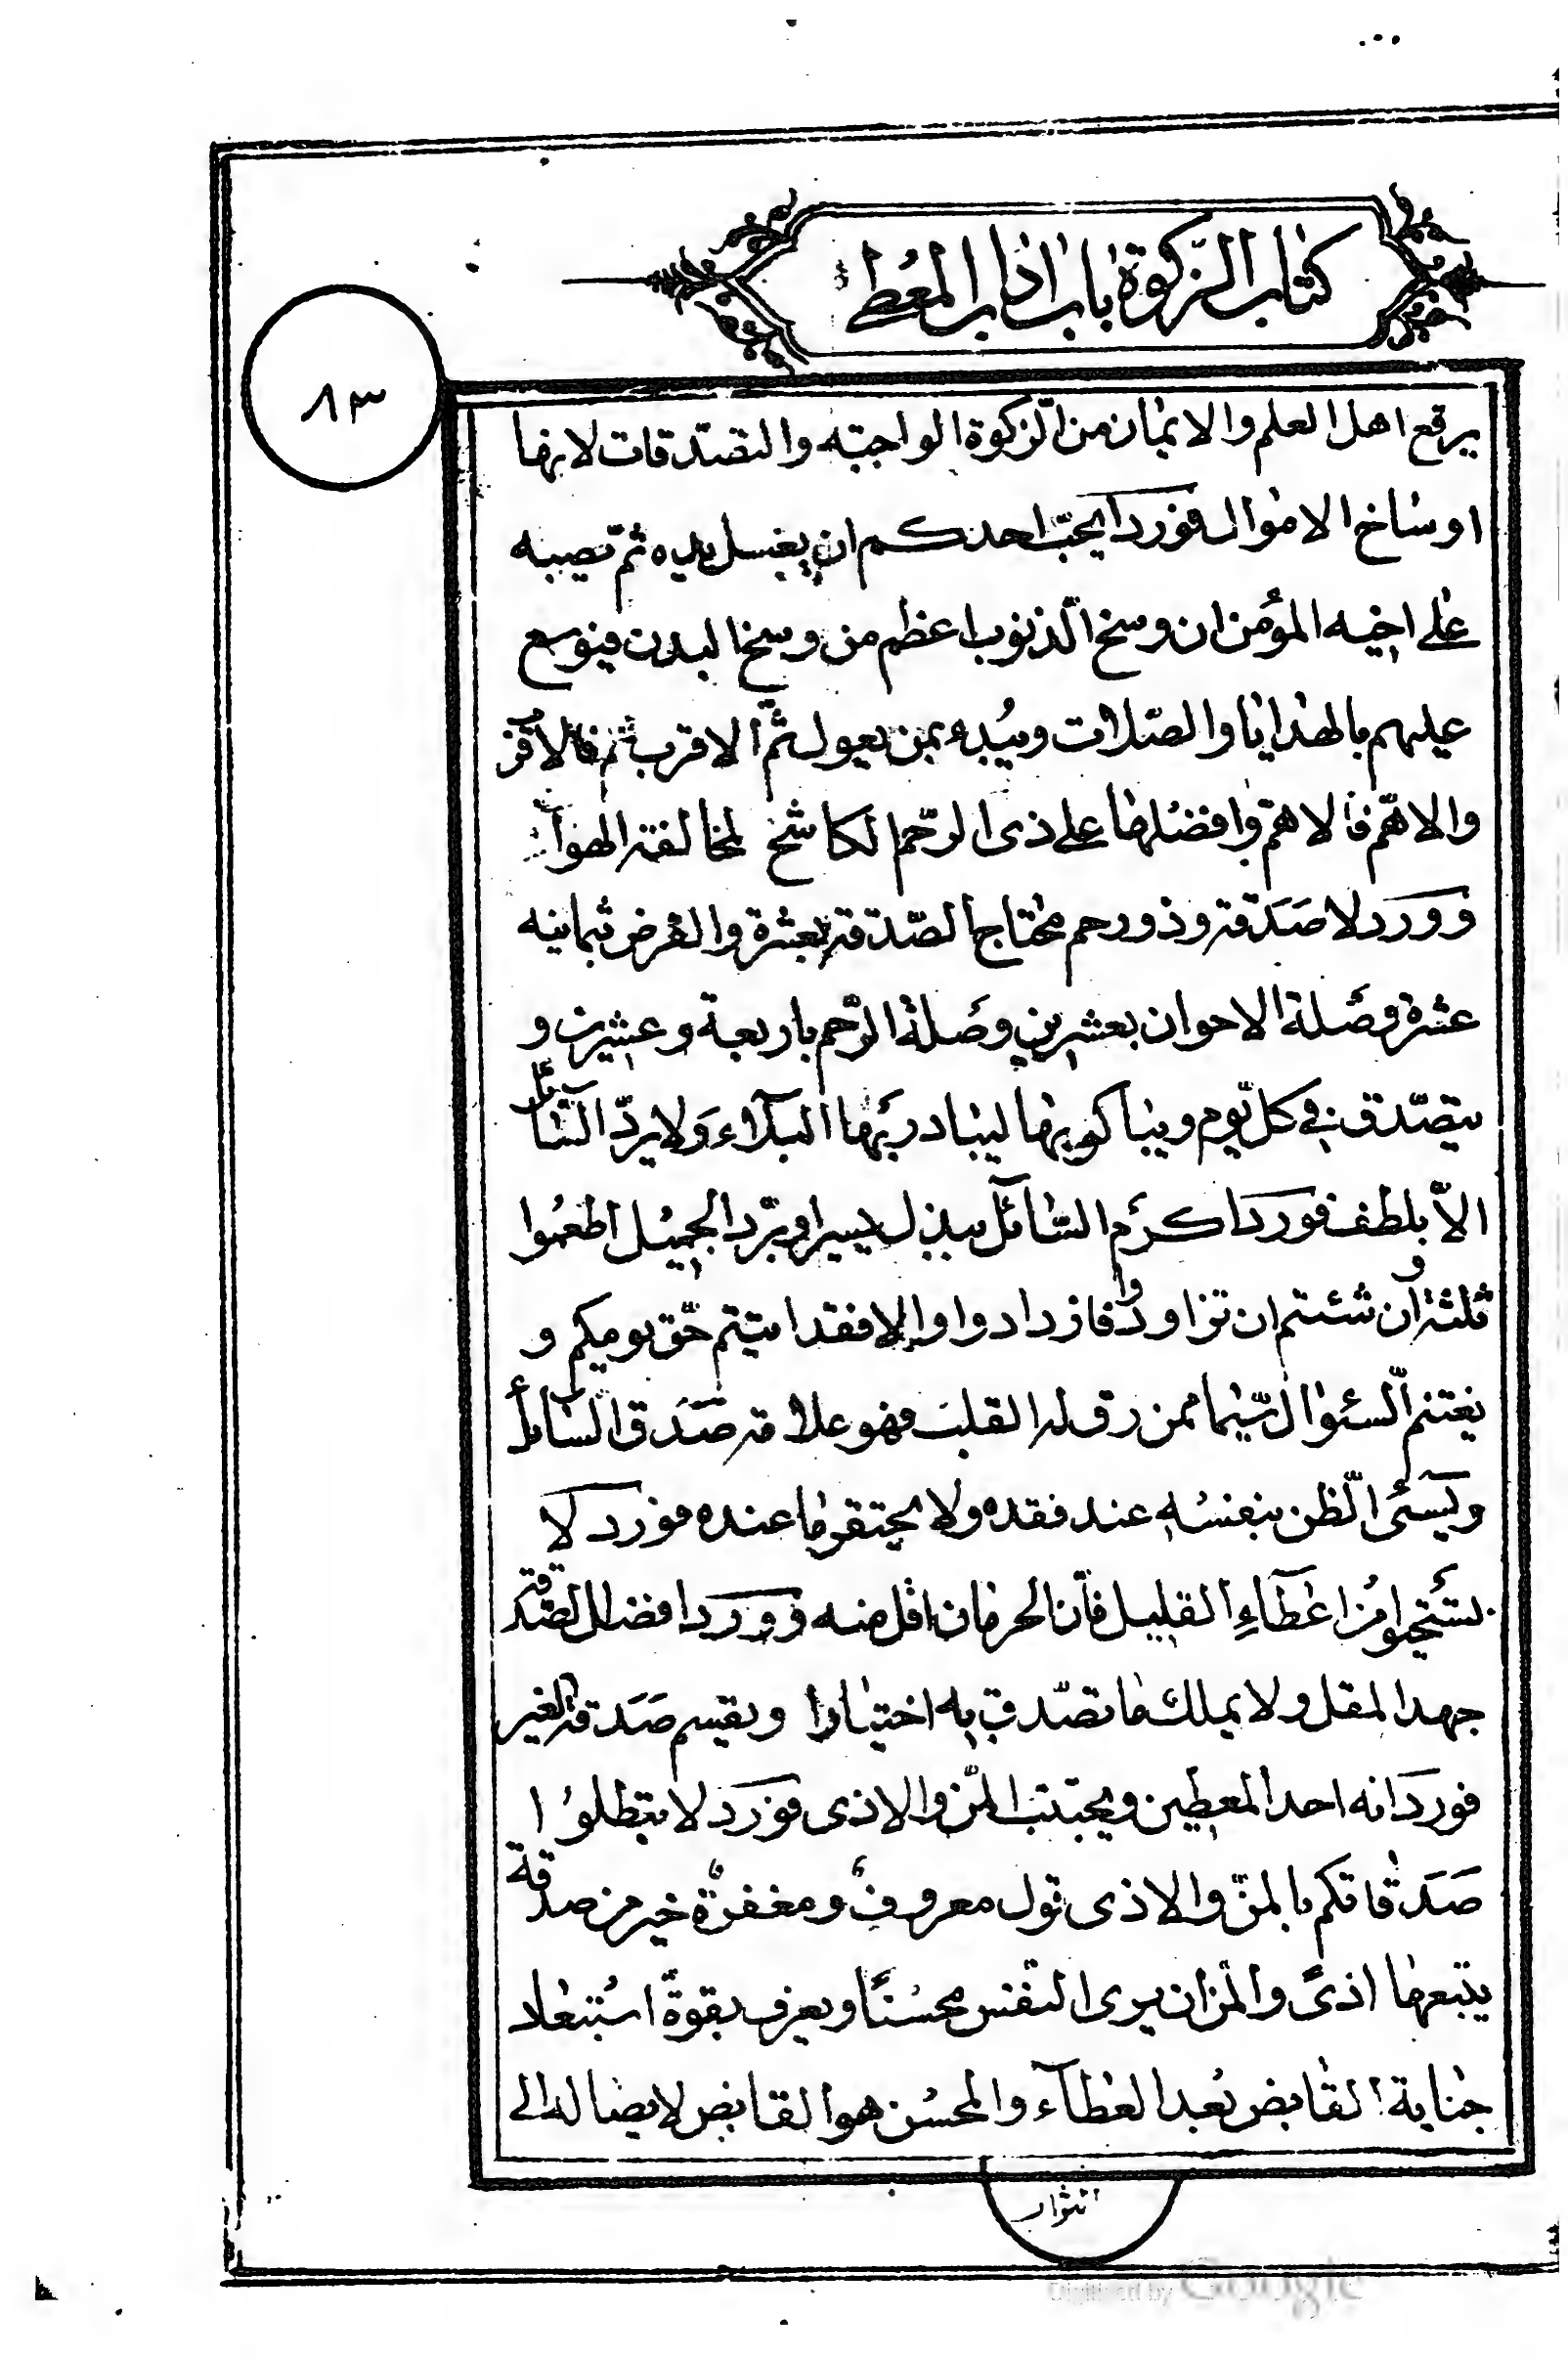 كتاب الزكوة باب اداب المعطى
٨٣
يرفع اهل العلم والايمان من الزكوة الواجبة والتصدقات لانها
اوساخ الاموال فورد ايحب احدكم ان يغسل يديه ثم تصيبه
على اخيه المؤمن ان وسخ الذنوب اعظم من وسخ البدن فيوسع
عليهم بالهدايا والصلات ويبدء بمن يعول ثم الاقرب فالاقرب
والاهم فالاهم وافضلها على ذى الرحم الكاشح لمخالفة الهواء
وورد لا صدقة وذو رحم محتاج الصدقة بعشرة والقرض بثمانيه
عشرة وصلة الاخوان بعشرين وصلة الرحم باربعة وعشرين و
يتصدق فى كل يوم ويباكر بها ليبادر بها البلاء ولا يرد السائل
الا بلطف فورد اكرم السائل ببذل يسير او برد الجميل اطعموا
ثلثة وان شئتم ان تزادوا فازدادوا والا فقد اديتم حق يومكم و
يغتنم السئوال سيما ممن رق له القلب فهو علامة صدق السائل
ويسئى الظن بنفسه عند فقده ولا يحتقر ما عنده فورد لا
تستحيوا من اعطاء القليل فان الحرمان اقل منه وورد افضل الصدقة
جهد المقل ولا يملك ما تصدق به اختيارا ويقسم صدقة الغير
فورد انه احد المعطين ويجتنب المن والاذى فورد لا تبطلوا
صدقاتكم بالمن والاذى قول معروف ومغفرة خير من صدقة
يتبعها اذى والمن ان يرى النفس محسنا ويعرف بقوة استبعاد
جناية القابض بعد العطاء والمحسن هو القابض لايصاله الى
الثواب
Digitized by Google